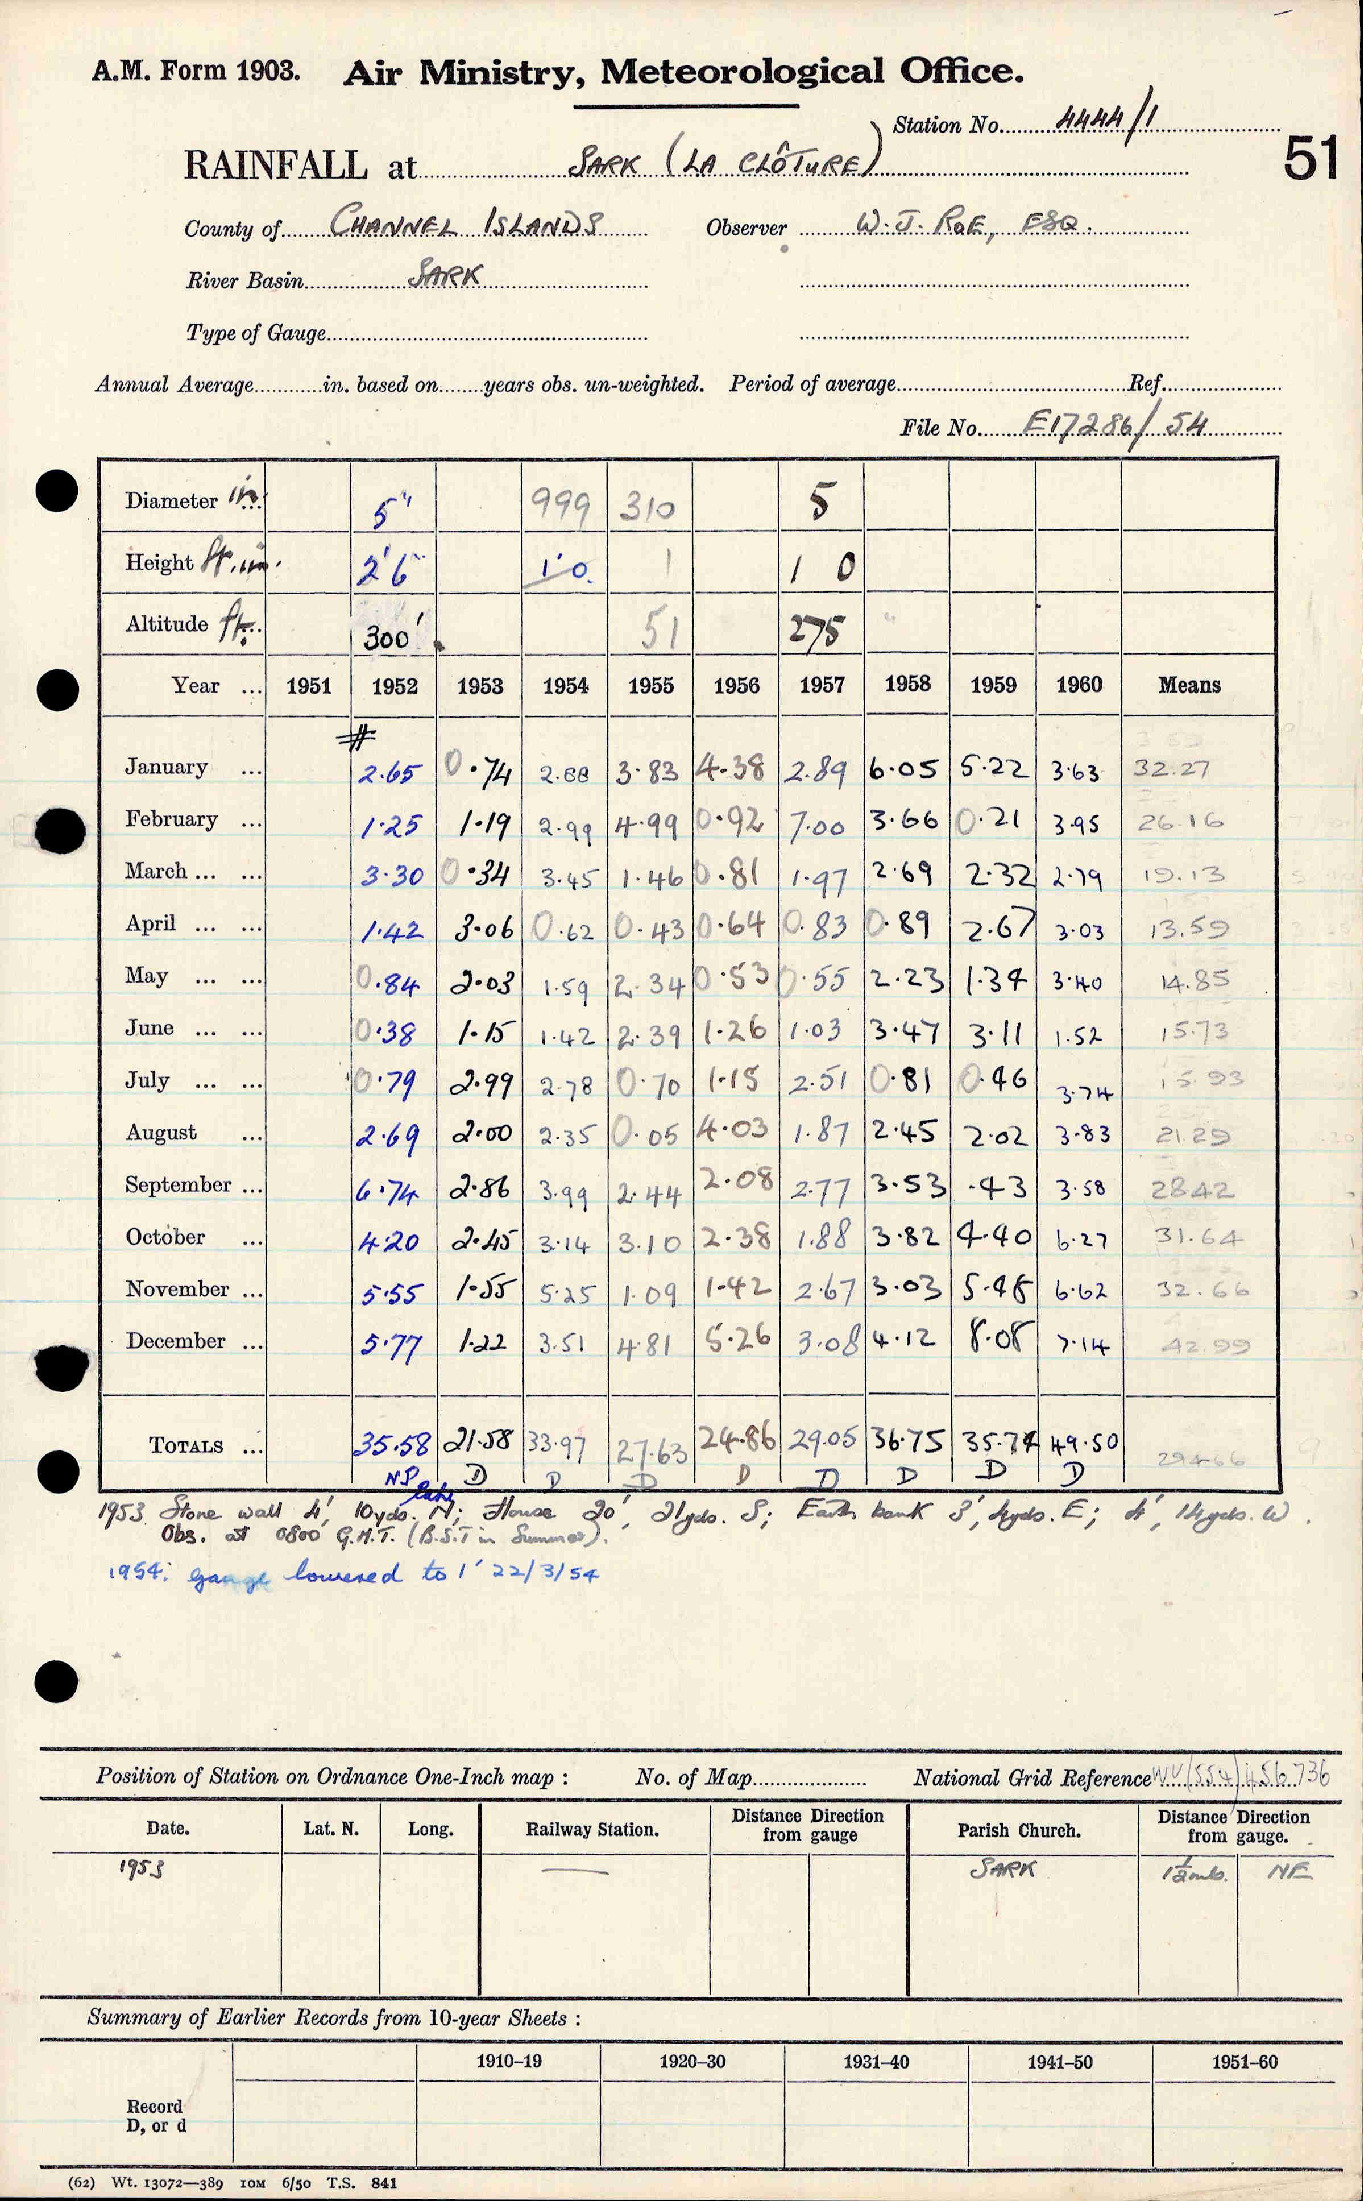 A.M. Form 1903. Air Ministry, Meteorological Office.
Station No. 4444/1
51
RAINFALL at SARK (LA CLÔTURE)
County of CHANNEL ISLANDS Observer W. J. ROE, ESQ.
River Basin SARK
Type of Gauge
Annual Average in. based on years obs. un-weighted. Period of average Ref.
File No. E17286/54
Diameter in. 5" 999 310 5
Height ft. in. 2'6" 1'0. 1 1 0
Altitude ft. 300' 51 275 "
Year ... 1951 1952 1953 1954 1955 1956 1957 1958 1959 1960 Means
#
January ... 2.65 0.74 2.88 3.83 4.38 2.89 6.05 5.22 3.63 32.27
February ... 1.25 1.19 2.99 4.99 0.92 7.00 3.66 0.21 3.95 26.16
March ... ... 3.30 0.34 3.45 1.46 0.81 1.97 2.69 2.32 2.79 19.13
April ... ... 1.42 3.06 0.62 0.43 0.64 0.83 0.89 2.67 3.03 13.59
May ... ... 0.84 2.03 1.59 2.34 0.53 0.55 2.23 1.34 3.40 14.85
June ... ... 0.38 1.15 1.42 2.39 1.26 1.03 3.47 3.11 1.52 15.73
July ... ... 0.79 2.99 2.78 0.70 1.15 2.51 0.81 0.46 3.74 15.93
August ... 2.69 2.00 2.35 0.05 4.03 1.87 2.45 2.02 3.83 21.29
September ... 6.74 2.86 3.99 2.44 2.08 2.77 3.53 .43 3.58 28.42
October ... 4.20 2.45 3.14 3.10 2.38 1.88 3.82 4.40 6.27 31.64
November ... 5.55 1.55 5.25 1.09 1.42 2.67 3.03 5.48 6.62 32.66
December ... 5.77 1.22 3.51 4.81 5.26 3.08 4.12 8.08 7.14 42.99
TOTALS ... 35.58 21.58 33.97 27.63 24.86 29.05 36.75 35.74 49.50 294.66
NP D D D D D D D D
1953 Stone wall 4', 10yds. N; House 20', 21yds. S; Earth bank 3', 4yds. E; 4', 14yds. W.
Obs. at 0800 G.M.T. (B.S.T in Summer).
1954: gauge lowered to 1' 22/3/54
Position of Station on Ordnance One-Inch map : No. of Map National Grid Reference WV(554)456736
Date. Lat. N. Long. Railway Station. Distance Direction from gauge Parish Church. Distance Direction from gauge.
1953 — SARK 1½ mls. NE
Summary of Earlier Records from 10-year Sheets :
1910–19 1920–30 1931–40 1941–50 1951–60
Record
D, or d
(62) Wt. 13072—389 10M 6/50 T.S. 841